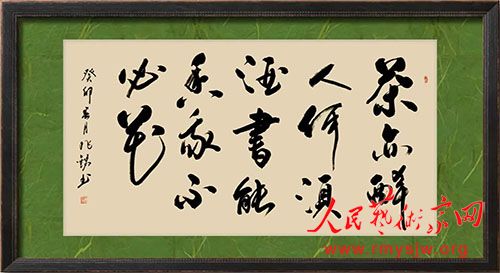 茶亦醉
人何須
酒書能
香我不
必花
癸卯春月 兆銘书
人民藝術家网
www.rmysjw.org